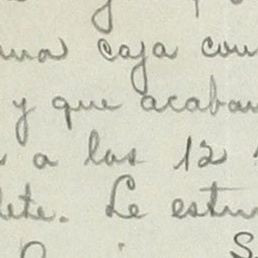 una caja con
y que acaban
a las 12
lete. Le estu
S